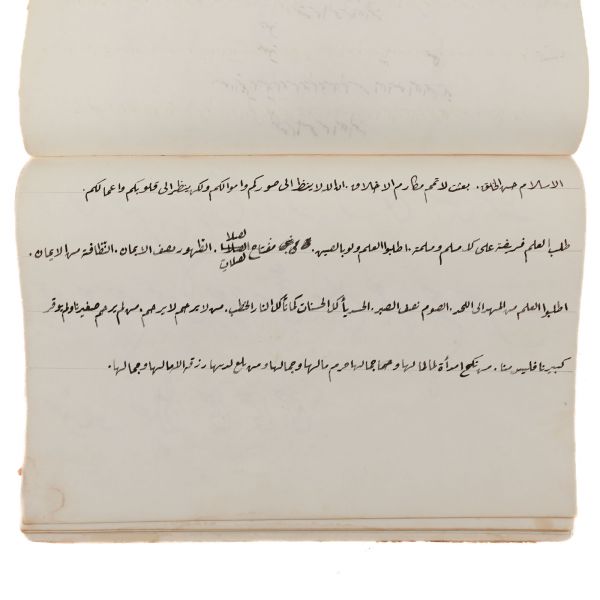 الاسلام حسن الخلق. بعثت لاتمم مكارم الاخلاق. ان الله لا ينظر الى صوركم واموالكم ولكن ينظر الى قلوبكم واعمالكم.
طلب العلم فريضة على كل مسلم ومسلمة. اطلبوا العلم ولو بالصين. مفتاح الصلاة الطهور نصف الايمان. النظافة من الايمان.
اطلبوا العلم من المهد الى اللحد. الصوم نصف الصبر. الحسد يأكل الحسنات كما تأكل النار الحطب. من لا يرحم لا يرحم. من لم يرحم صغيرنا ولم يوقر
كبيرنا فليس منا. من نكح امرأة لمالها وجمالها حرم مالها وجمالها ومن نكحها لدينها رزقه الله مالها وجمالها.